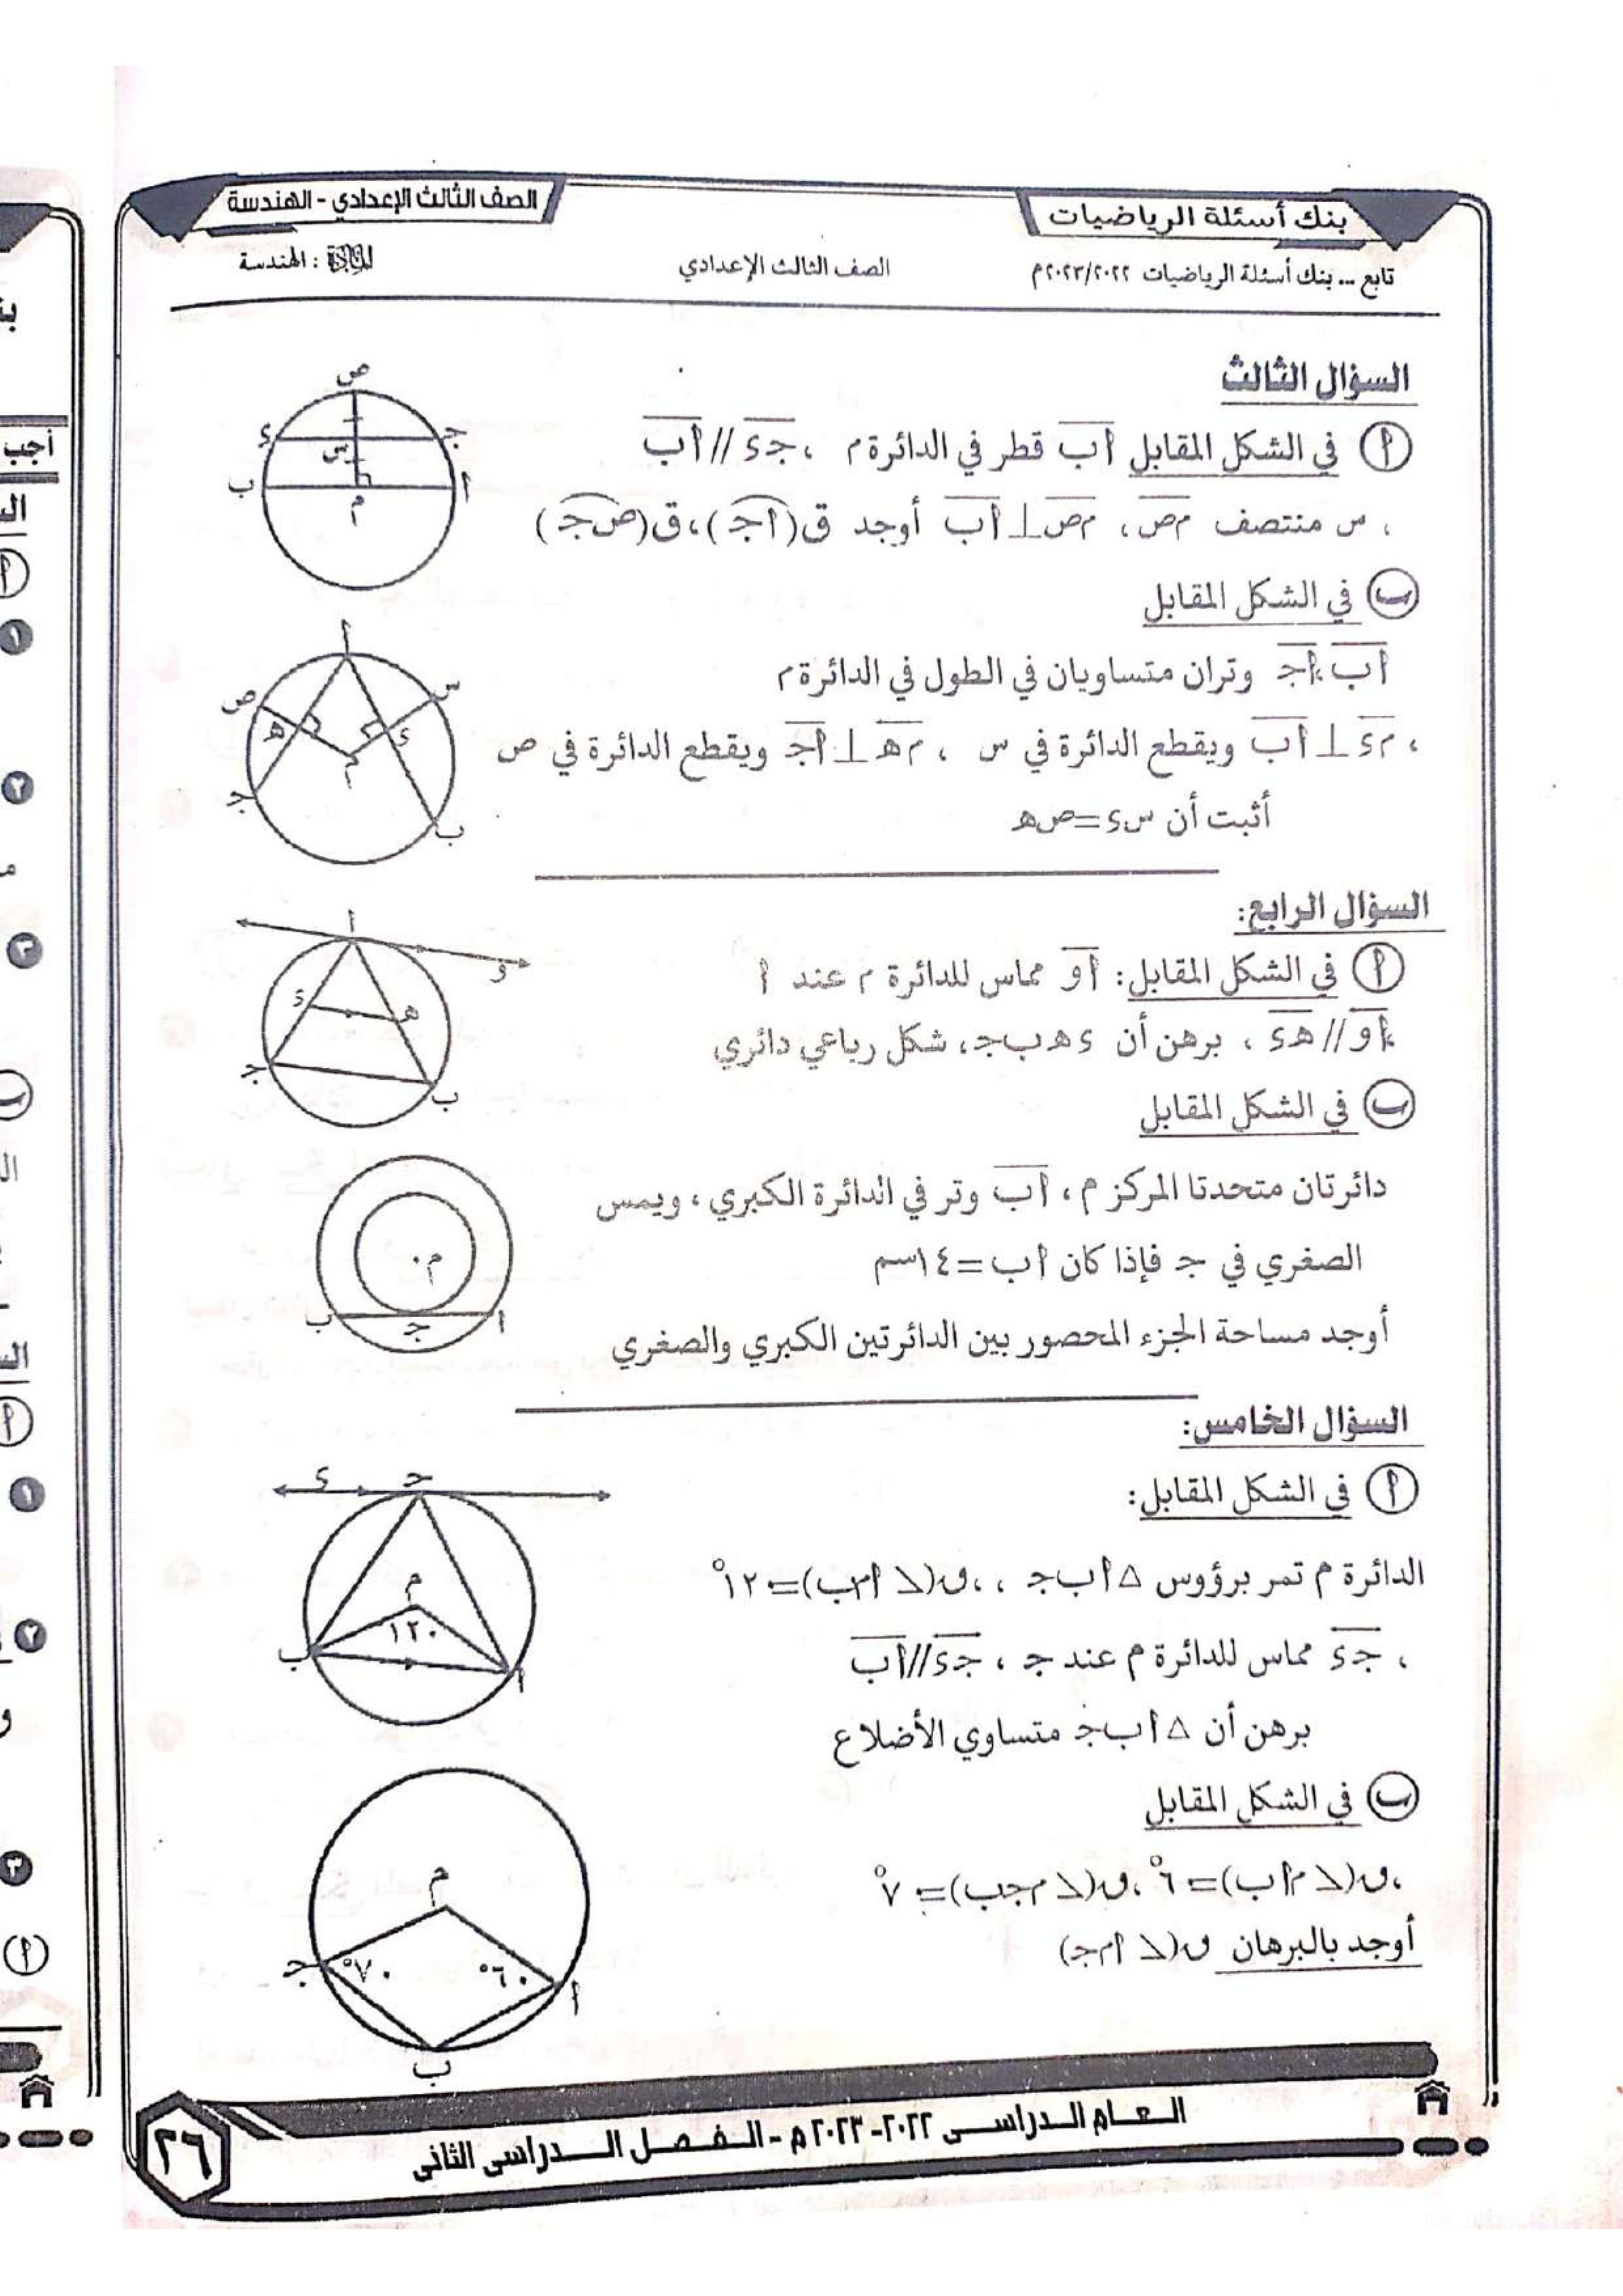 بنك أسئلة الرياضيات
الصف الثالث الإعدادي - الهندسة
تابع ... بنك أسئلة الرياضيات ٢٠٢٢/٢٠٢٣م
الصف الثالث الإعدادي
المادة : الهندسة
السؤال الثالث
أ في الشكل المقابل أب قطر في الدائرة م ، جـ د // أب
، س منتصف م ص ، م ص ⊥ أب أوجد ق(أجـ) ، ق(ص جـ)
ص
د
جـ
س
ب
أ
م
ب في الشكل المقابل
أب ، أجـ وتران متساويان في الطول في الدائرة م
، م د ⊥ أب ويقطع الدائرة في س ، م هـ ⊥ أجـ ويقطع الدائرة في ص
أثبت أن س د = ص هـ
أ
ص
س
هـ
د
م
جـ
ب
السؤال الرابع:
أ في الشكل المقابل: أو مماس للدائرة م عند أ
، أو // هـ د ، برهن أن د هـ ب جـ ، شكل رباعي دائري
أ
و
د
هـ
جـ
ب
ب في الشكل المقابل
دائرتان متحدتا المركز م ، أب وتر في الدائرة الكبري ، ويمس
الصغري في جـ فإذا كان أب = ١٤سم
أوجد مساحة الجزء المحصور بين الدائرتين الكبري والصغري
م
ب
جـ
أ
السؤال الخامس:
أ في الشكل المقابل:
الدائرة م تمر برؤوس △ أب جـ ، ، ق(∠ أم ب) = ١٢٠°
، جـ د مماس للدائرة م عند جـ ، جـ د // أب
برهن أن △ أب جـ متساوي الأضلاع
د
جـ
م
١٢٠
ب
أ
ب في الشكل المقابل
، ق(∠ م أب) = ٦٠° ، ق(∠ م جـ ب) = ٧٠°
أوجد بالبرهان ق(∠ أم جـ)
م
جـ
٧٠°
٦٠°
أ
ب
العام الدراسى ٢٠٢٢-٢٠٢٣م - الفصل الدراسى الثانى
٢٦
أجب
١
٢
٣
١
٢
٣